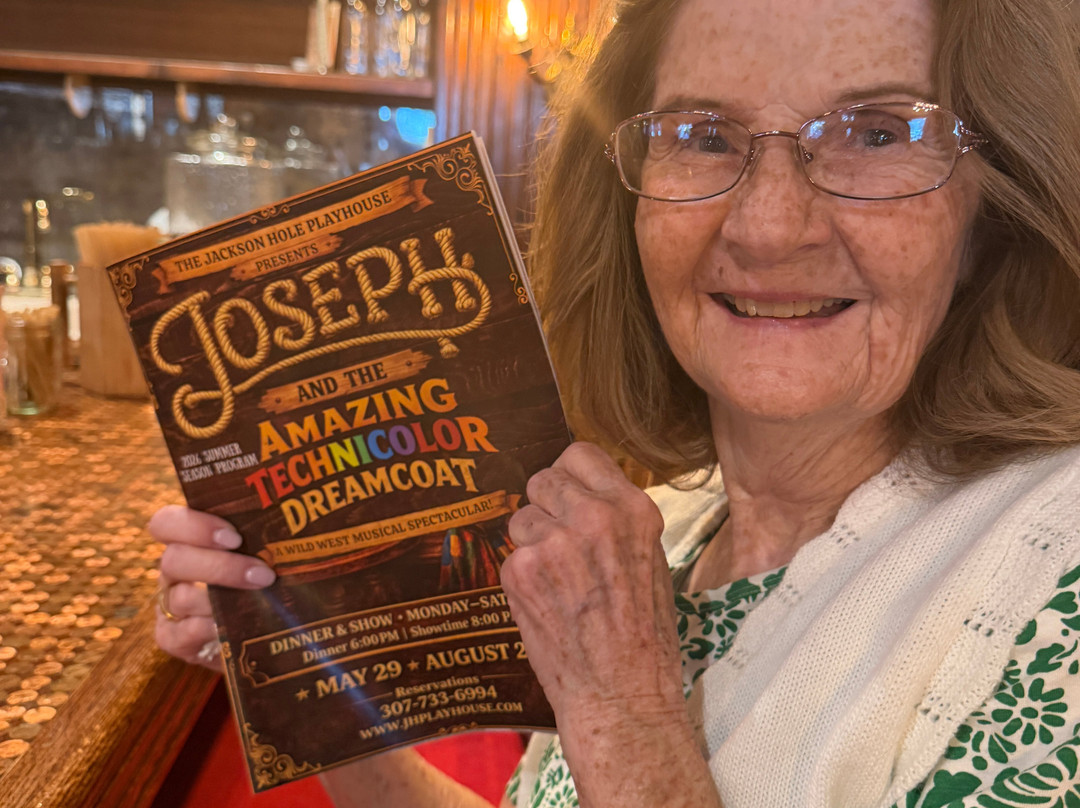 THE JACKSON HOLE PLAYHOUSE
PRESENTS
JOSEPH
AND THE
AMAZING
TECHNICOLOR
DREAMCOAT
2026 SUMMER
SEASON PROGRAM
A WILD WEST MUSICAL SPECTACULAR!
DINNER & SHOW • MONDAY–SAT
Dinner 6:00 PM | Showtime 8:00 P
★ MAY 29 ★ AUGUST 2
Reservations
307-733-6994
WWW.JHPLAYHOUSE.COM